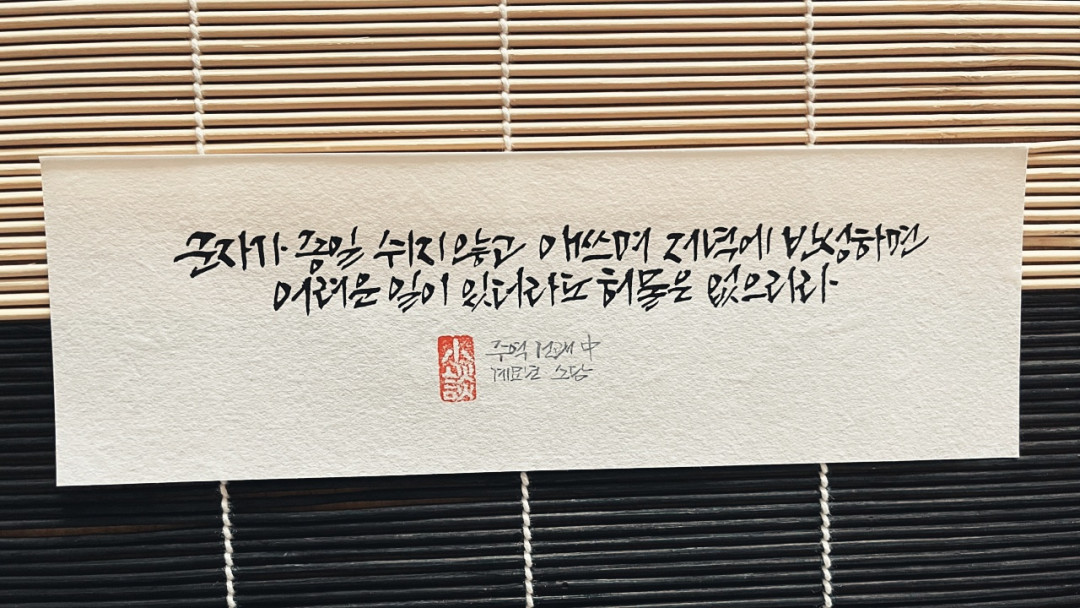 군자가 종일 쉬지 않고 애쓰며 저녁에 반성하면
어려운 일이 있더라도 허물은 없으리라
주역 건괘 中
계묘년 소담